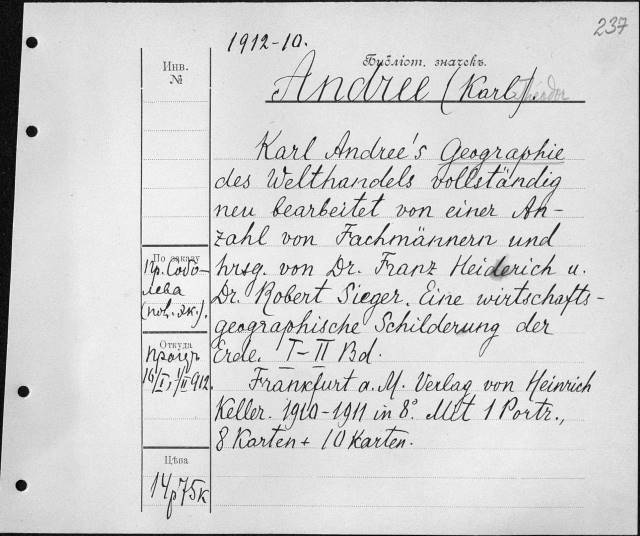 237
1912-10.
Библіот. значекъ.
Andree (Karl Theodor).
Инв.
№
Karl Andree's Geographie
des Welthandels vollständig
neu bearbeitet von einer An-
zahl von Fachmännern und
hrsg. von Dr. Franz Heiderich u.
Dr. Robert Sieger. Eine wirtschafts-
geographische Schilderung der
Erde. I-II Bd.
Frankfurt a. M. Verlag von Heinrich
Keller. 1910-1911 in 8°. Mit 1 Portr.,
8 Karten + 10 Karten.
По заказу
пр. Собо-
лева
Откуда
16/I, 1/II 912.
Цѣна
14р75к